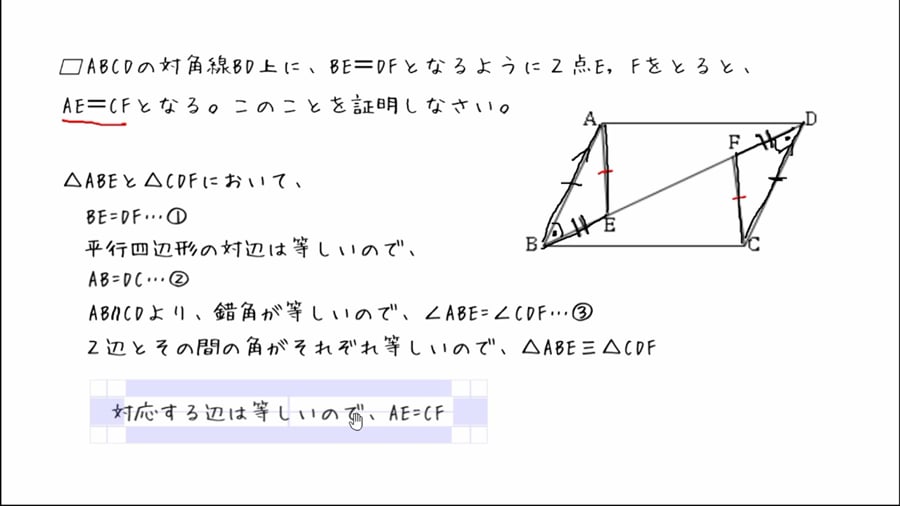 ▱ABCDの対角線BD上に、BE=DFとなるように2点E, Fをとると、
AE=CFとなる。このことを証明しなさい。
△ABEと△CDFにおいて、
BE=DF…①
平行四辺形の対辺は等しいので、
AB=DC…②
AB//CDより、錯角が等しいので、∠ABE=∠CDF…③
2辺とその間の角がそれぞれ等しいので、△ABE≡△CDF
対応する辺は等しいので、AE=CF
A
D
F
E
B
C